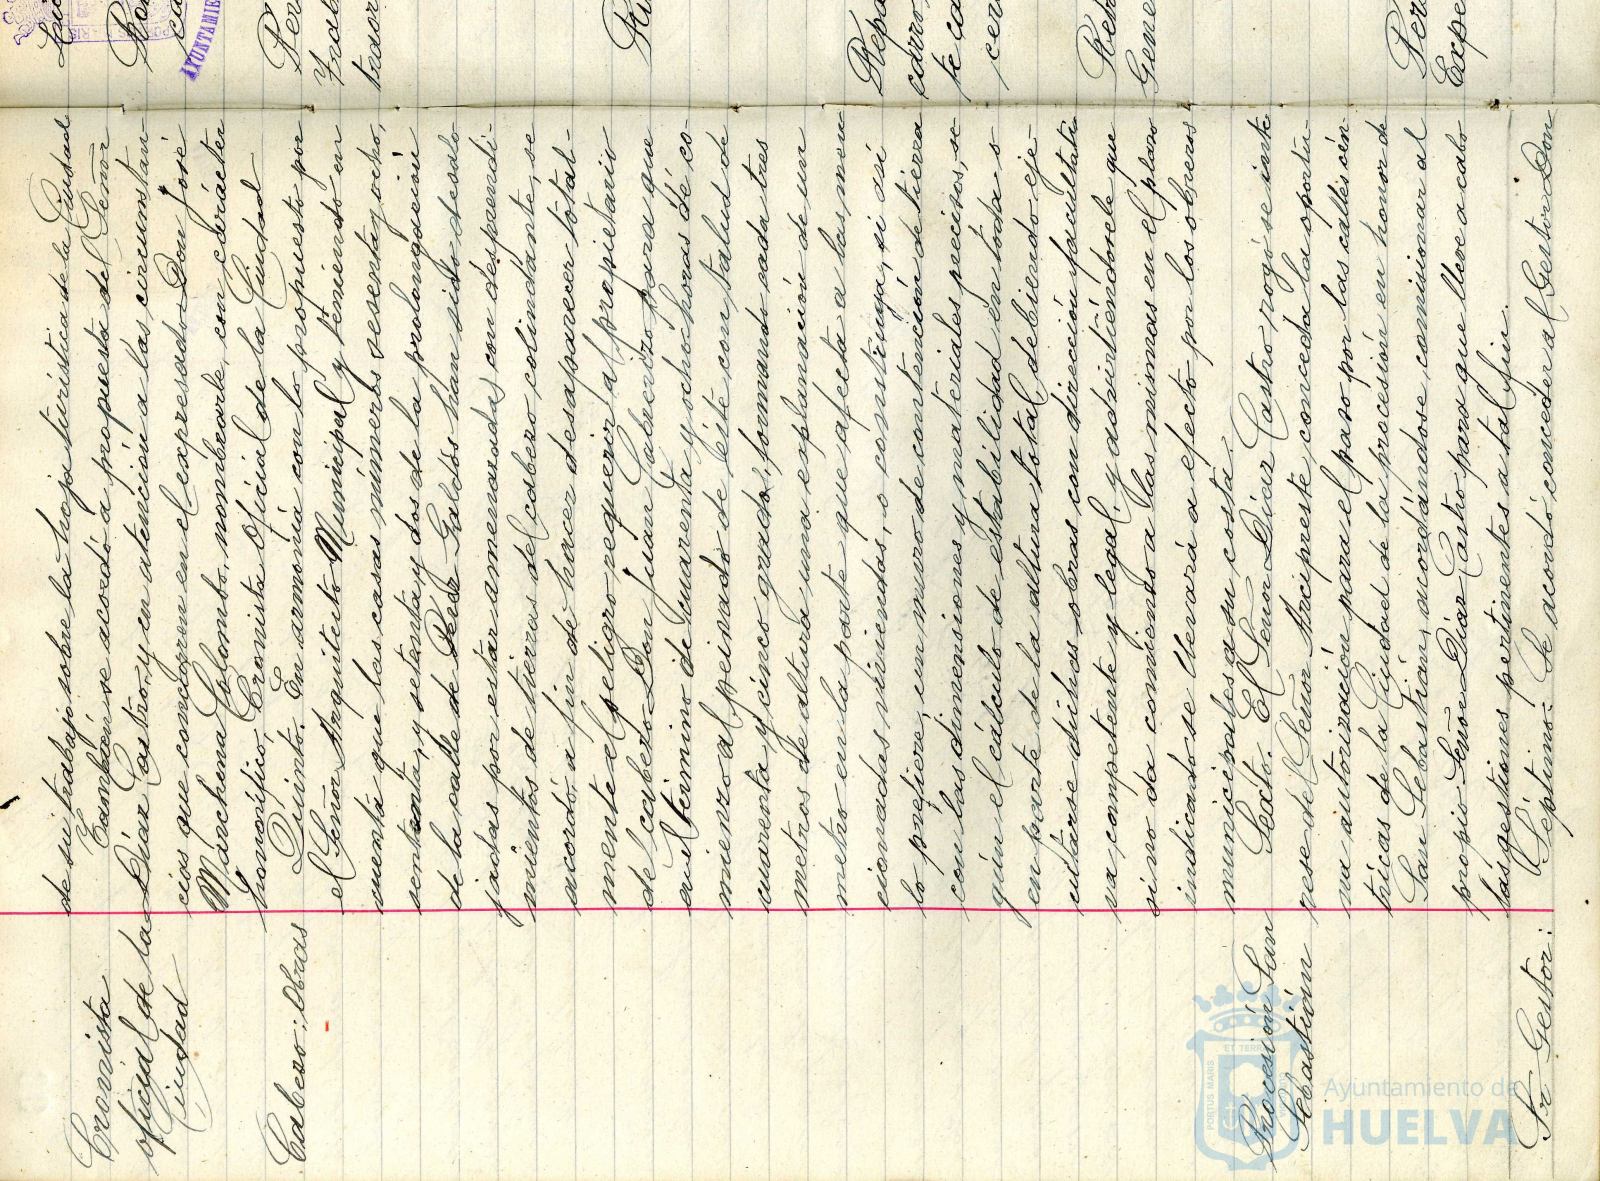 de su trabajo sobre la hoja turística de la Ciudad
Cronista
oficial de la
Ciudad
También se acordó a propuesta del Señor
Díaz Castro, y en atención a las circunstan-
cias que concurren en el expresado Don José
Manchena Colombo, nombrarle, con carácter
honorífico, Cronista Oficial de la Ciudad
Cabezo: Obras
Quinto. En armonía con lo propuesto por
el Señor Arquitecto Municipal y teniendo en
cuenta que las casas números sesenta y ocho,
setenta, y setenta y dos de la prolongación
de la calle de Pérez Galdós han sido desalo
jadas por estar amenazadas con desprendi-
mientos de tierras del cabezo colindante, se
acordó, a fin de hacer desaparecer total-
mente el peligro, requerir al propietario
del cabezo Don Juan Cabrerizo para que
en el término de cuarenta y ocho horas dé co-
mienzo al peinado de éste con talud de
cuarenta y cinco grados, formando cada tres
metros de altura una explanación de un
metro en la parte que afecta a las men
cionadas viviendas, o construya, si así
lo prefiere, un muro de contención de tierra
con las dimensiones y materiales precisos, se
gún el cálculo de estabilidad en toda o
en parte de la altura total, debiendo eje-
cutarse dichas obras con dirección facultati
va competente y legal, y advirtiéndosele que
si no da comienzo a las mismas en el plazo
indicado se llevará a efecto por los obreros
municipales a su costa.
Procesión San
Sebastián
Sexto. El Señor Díaz Castro rogó se inte
rese del Señor Arcipreste conceda la oportu-
na autorización para el paso por las calles cén
tricas de la Ciudad de la procesión en honor de
San Sebastián, acordándose comisionar al
propio Señor Díaz Castro para que lleve a cabo
las gestiones pertinentes a tal fin.
Sr Gestor:
Séptimo: Se acordó conceder al Gestor Don
AYUNTAMIE
Trab
Repa
carro,
te ca
Gene
Expe
PORTUS MARIS
ET TERR
Ayuntamiento de
HUELVA